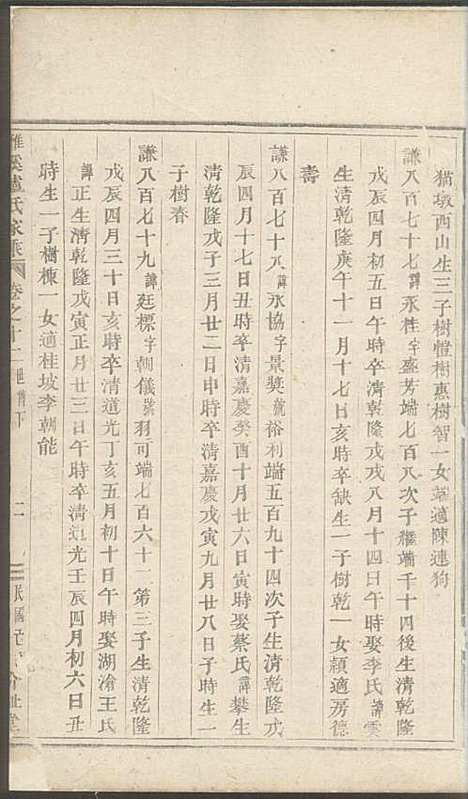 猫墩西山生三子樹體樹惠樹智一女端適陳連狗
謙八百七十七諱永桂字盛芳端七百八次子繼端千十四後生清乾隆
戊辰四月初五日午時卒乾隆戊戌八月十四日午時娶李氏諱雲
生清乾隆庚午十一月十七日亥時卒缺生一子樹乾一女穎適房德
壽
謙八百七十八諱永協字景奬號裕利端五百九十四次子生清乾隆戊
辰四月十七日丑時卒清嘉慶癸酉十月廿六日寅時娶蔡氏諱攀生
清乾隆戊子三月廿二日申時卒清嘉慶戊寅九月廿八日子時生一
子樹春
謙八百七十九諱廷標字朝儀號羽可端七百六十一第三子生清乾隆
戊辰四月三十日亥時卒清道光丁亥五月初十日午時娶湖滄王氏
諱正生清乾隆戊寅正月廿三日午時卒清道光壬辰四月初六日丑
時生一子樹棟一女適桂坡李朝能
雅溪盧氏家乘 卷之十二 下
二